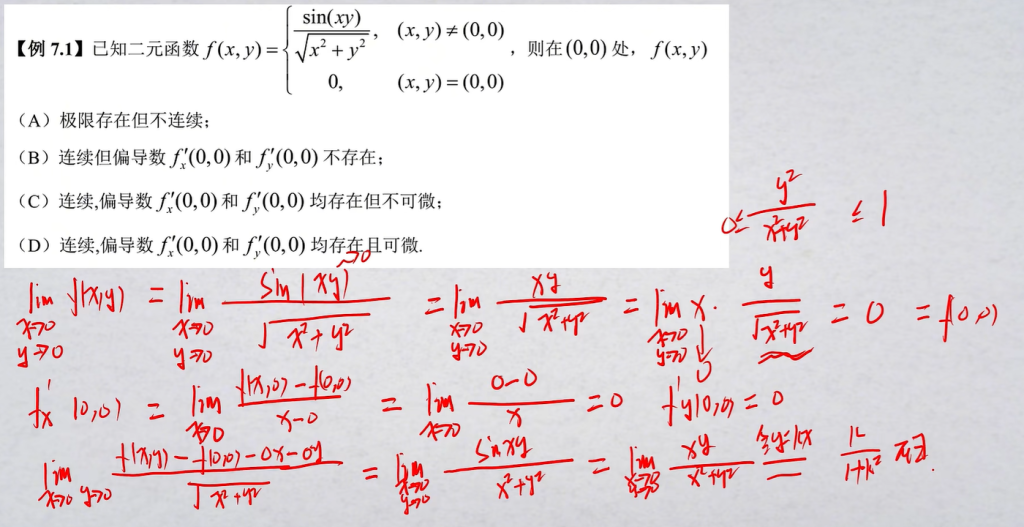 【例 7.1】已知二元函数 f(x,y) = { sin(xy)/√(x²+y²), (x,y)≠(0,0) ; 0, (x,y)=(0,0) ，则在(0,0) 处，f(x,y)
（A）极限存在但不连续;
（B）连续但偏导数 f′ₓ(0,0) 和 f′ᵧ(0,0) 不存在;
（C）连续,偏导数 f′ₓ(0,0) 和 f′ᵧ(0,0) 均存在但不可微;
（D）连续,偏导数 f′ₓ(0,0) 和 f′ᵧ(0,0) 均存在且可微.
0 ≤ y²/(x²+y²) ≤ 1
lim(x→0, y→0) f(x,y) = lim(x→0, y→0) sin(xy)/√(x²+y²) = lim(x→0, y→0) xy/√(x²+y²) = lim(x→0, y→0) x · y/√(x²+y²) = 0 = f(0,0)
→0
↓ 0
f′ₓ(0,0) = lim(x→0) (f(x,0) − f(0,0))/(x−0) = lim(x→0) (0−0)/x = 0 f′ᵧ(0,0) = 0
lim(x→0, y→0) (f(x,y) − f(0,0) − 0x − 0y)/√(x²+y²) = lim(x→0, y→0) sin xy/(x²+y²) = lim(x→0, y→0) xy/(x²+y²) 令y=kx = k/(1+k²) 无关